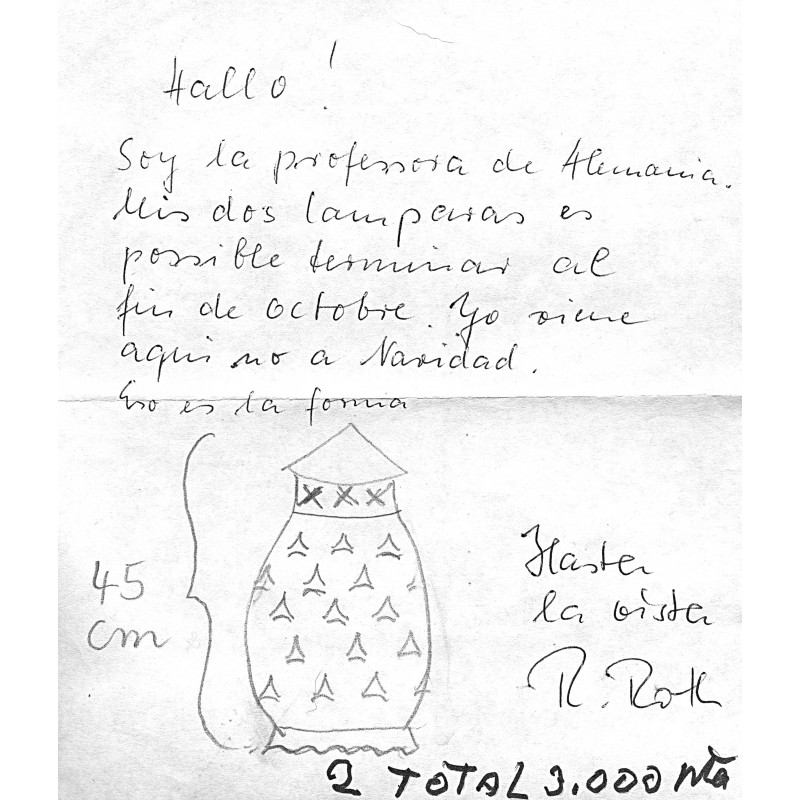 Hallo!
Soy la professora de Alemania.
Mis dos lamparas es
possible terminar al
fin de octobre. Yo viene
aqui no a Navidad.
Eso es la forma
X X X
45
cm
Hasta
la vista
R. Roth
2 TOTAL 3.000 Pta